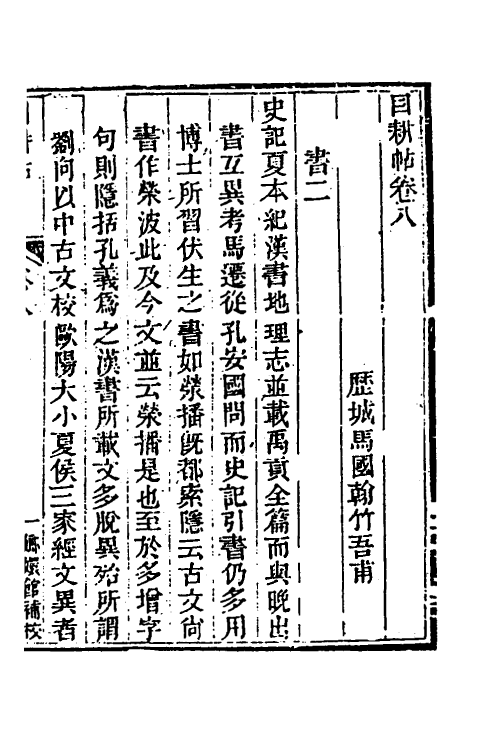 目耕帖卷八
歷城馬國翰竹吾甫
書二
史記夏本紀漢書地理志並載禹貢全篇而與晚出
書互異考馬遷從孔安國問而史記引書仍多用
博士所習伏生之書如滎播旣都索隱云古文尙
書作榮波此及今文並云榮播是也至於多增字
句則隱括孔義爲之漢書所載文多脫異殆所謂
劉向以中古文校歐陽大小夏侯三家經文異者
一嫏嬛館補校